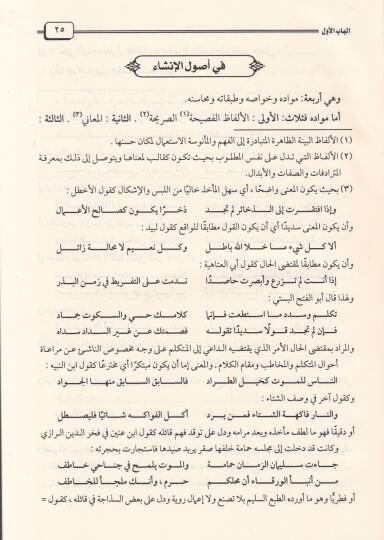 الباب الأول
٢٥
في أصول الإنشاء
وهي أربعة: مواده وخواصه وطبقاته ومحاسنه.
أما مواده فثلاث: الأولى : الألفاظ الفصيحة(١) الصريحة(٢) . الثانية : المعاني(٣) . الثالثة :
(١) الألفاظ البينة الظاهرة المتبادرة إلى الفهم والمأنوسة الاستعمال لمكان حسنها .
(٢) الألفاظ التي تدل على نفس المطلوب بحيث تكون كقالب لمعناها ويتوصل إلى ذلك بمعرفة
المترادفات والصفات والأبدال.
(٣) بحيث يكون المعنى واضحًا، أي سهل المأخذ خاليًا من اللبس والإشكال كقول الأخطل:
وإذا افتقرت إلى الذخائر لم تجد ذخرًا يكون كصالح الأعمال
وأن يكون المعنى سديدًا أي أن يكون القول مطابقًا للواقع كقول لبيد :
ألا كل شيء ما خلا الله باطل وكل نعيم لا محالة زائل
وأن يكون مطابقًا لمقتضى الحال كقول أبي العتاهية :
إذا أنت لم تزرع وأبصرت حاصدًا ندمت على التفريط في زمن البذر
ولهذا قال أبو الفتح البستي :
تكلم وسدد ما استطعت فإنما كلامك حي والسكوت جماد
فإن لم تجد قولًا سديدًا تقوله فصمتك عن غير السداد سداد
والمراد بمقتضى الحال الأمر الذي يقتضيه الداعي إلى المتكلم على وجه مخصوص الناشئ عن مراعاة
أحوال المتكلم والمخاطب ومقام الكلام . والمعنى إما أن يكون مبتكرًا أي مخترعًا كقول ابن النبيه :
الناس للموت كخيل الطراد فالسابق السابق منها الجواد
وكقول آخر في وصف الشتاء :
والنار فاكهة الشتاء فمن يرد أكل الفواكه شاتيًا فليصطل
أو دقيقًا فهو ما لطف مأخذه وبعد مرامه ودل على توقد فهم قائله كقول ابن عنين في فخر الدين الرازي
وكانت قد دخلت إلى مجلسه حمامة خلفها صقر يريد صيدها فاستجارت بحجرته :
جاءت سليمان الزمان حمامة والموت يلمح في جناحي خاطف
من أنبأ الورقاء أن محلكم حرم ، وأنك ملجأ للخائف
أو فطريًا وهو ما أورده الطبع السليم بلا تصنع ولا إعمال روية ودل على بعض السذاجة في قائله ، كقول =